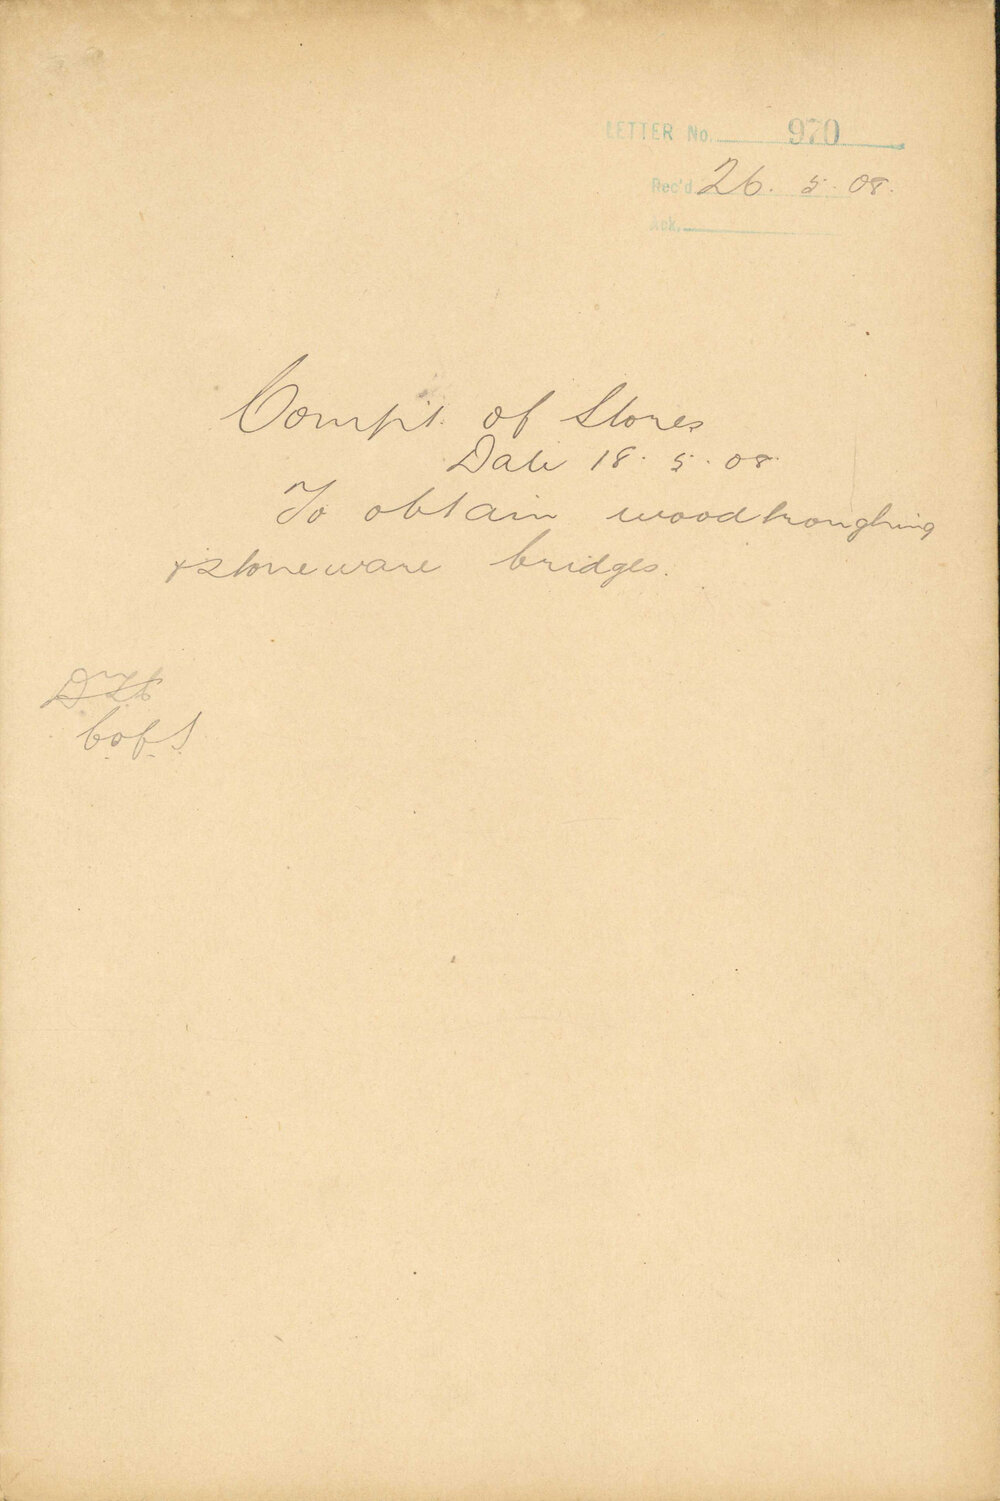 LETTER No. 970
Rec'd 26. 5. 08.
Ack.
Compt. of Stores
Date 18. 5. 08.
To obtain wood troughing
& stoneware bridges.
C. of S.